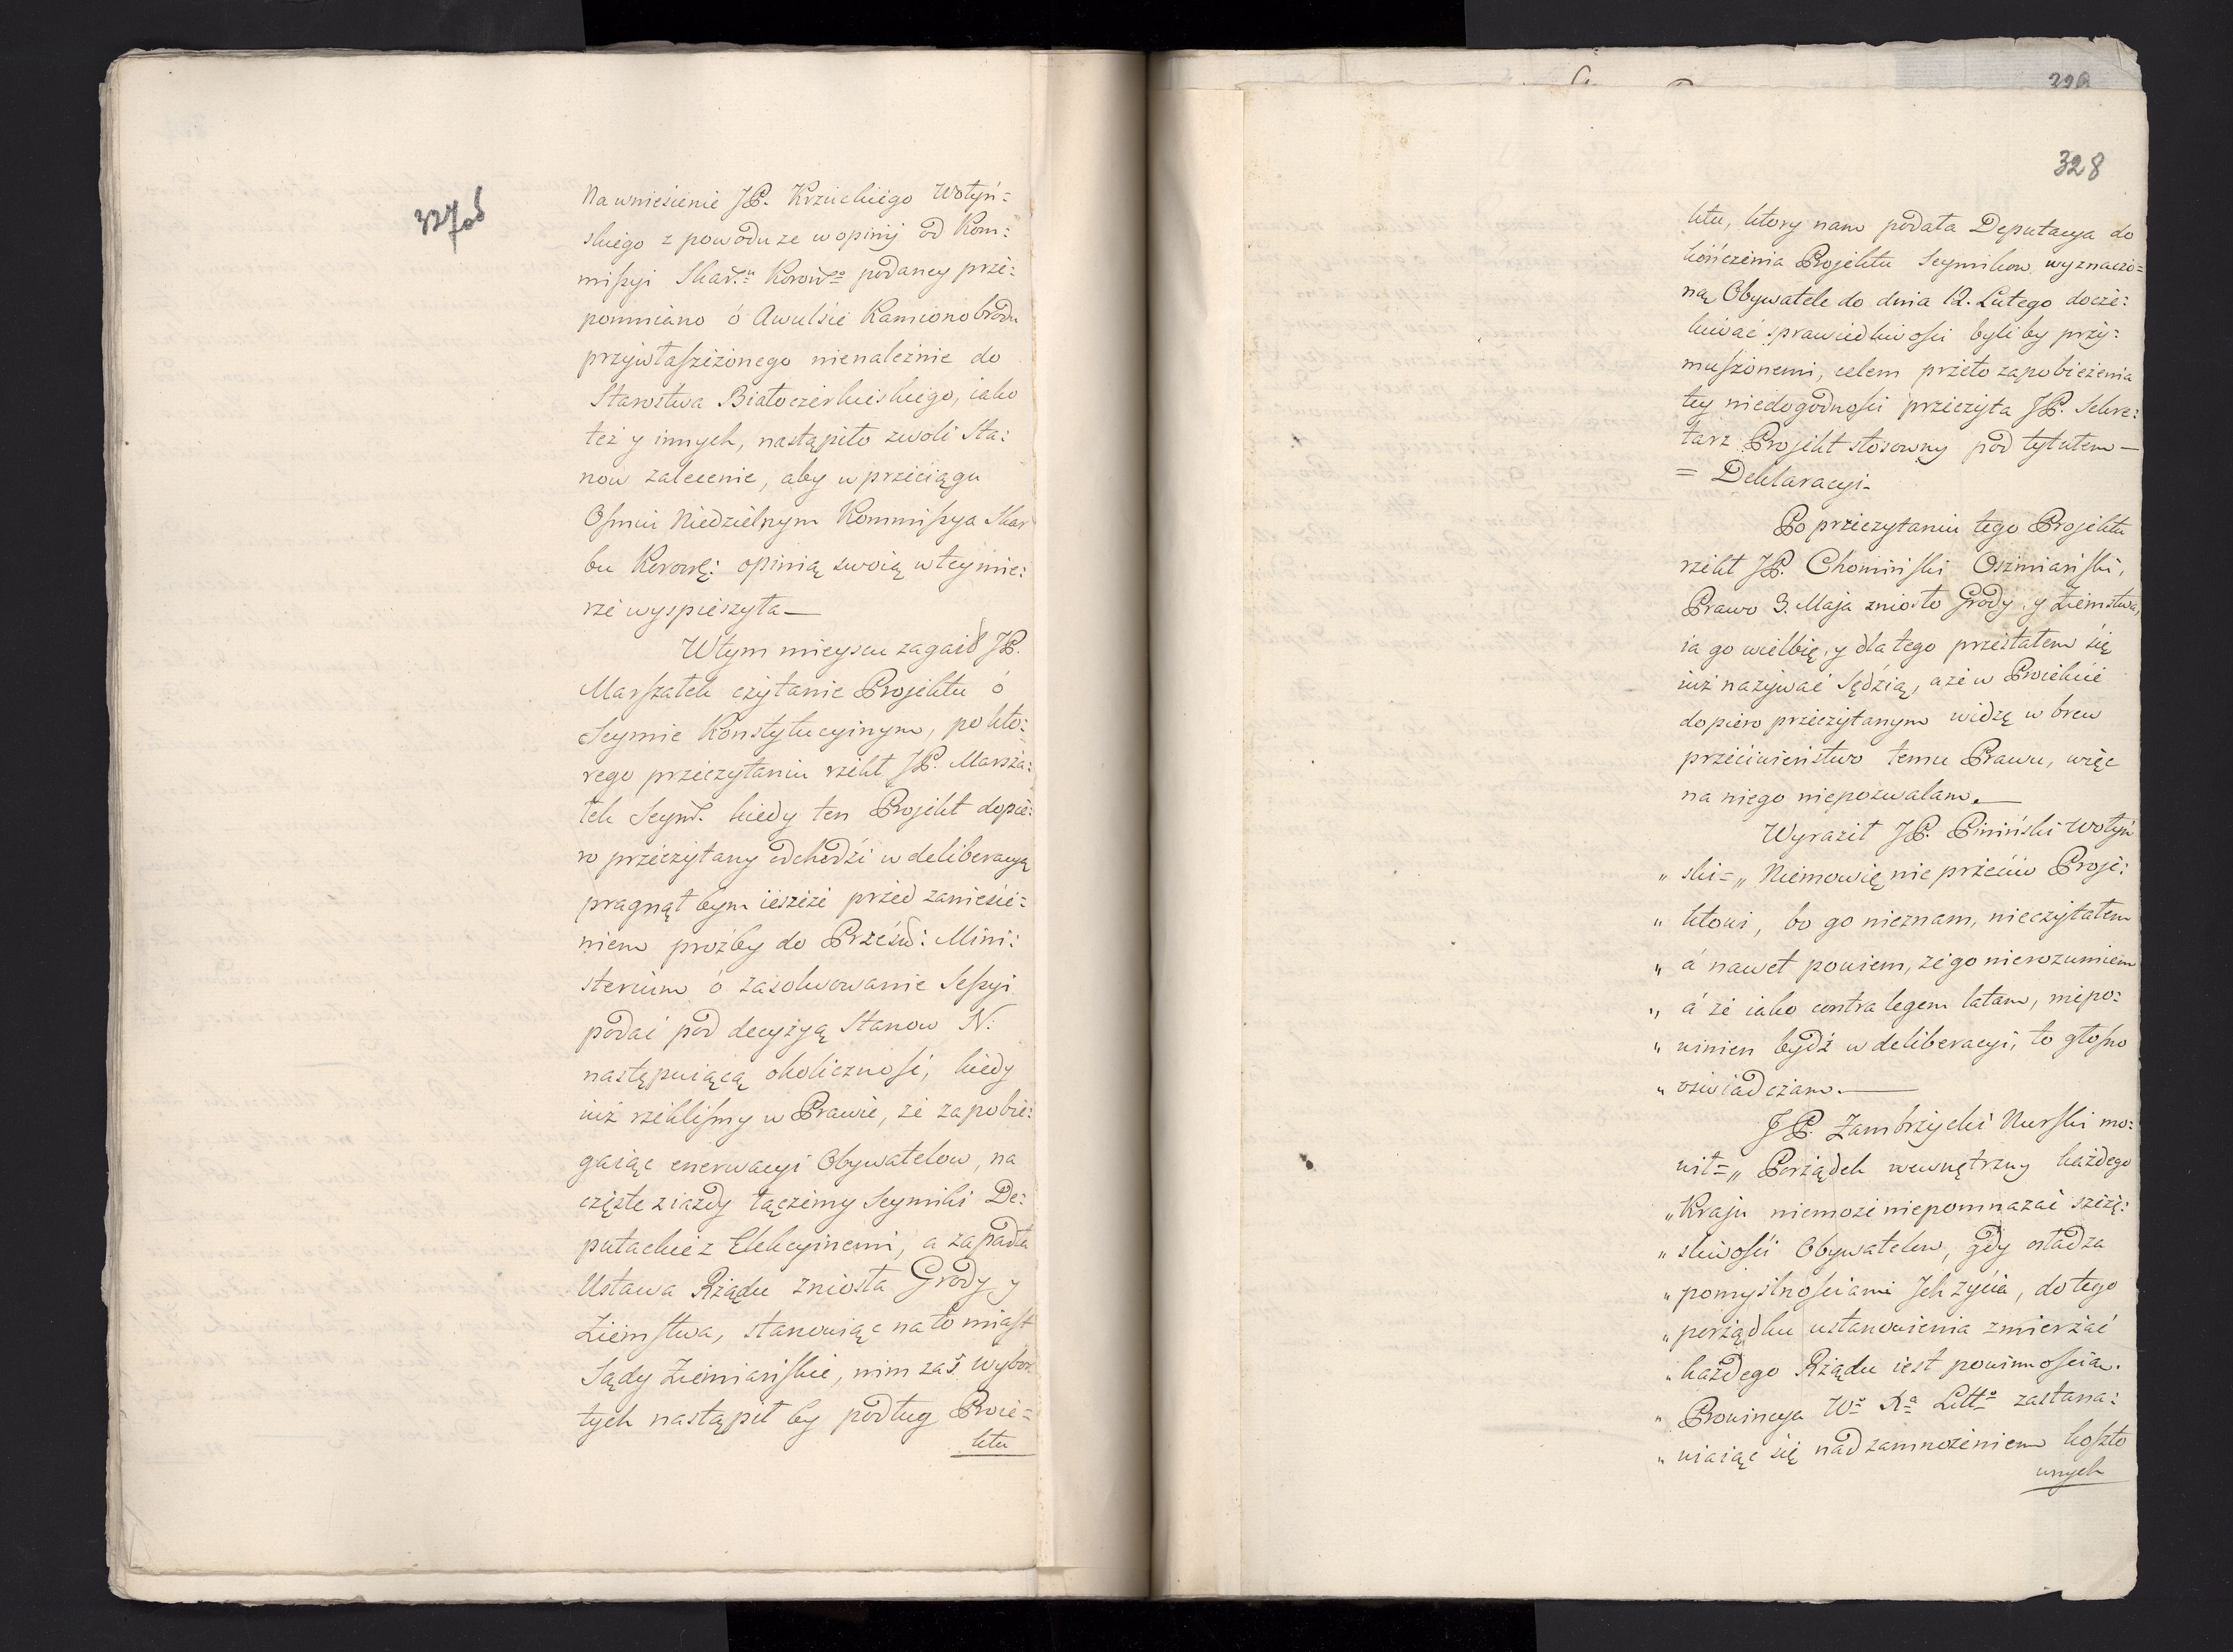 327od
Na wniesienie JP. Krzuckiego Wołyń=
skiego z powodu ze w opinij od Kom:
mißyi Skar: Koron: podaney prze:
pomniano ó Awulsie Kamionobrodu
przywłaszczonego nienależnie do
Starostwa Białoczerkieskiego, iako
też y innych, nastąpiło zwoli Sta:
now zalecenie, aby w przeciągu
Ośmiu Niedzielnym Kommißya Skar
bu Koron: opinią swoią w tey mie:
rze wyspieszyła —
W tym mieyscu zagaił JP.
Marszałek czytanie Projektu ó
Seymie Konstytucyinym, po kto:
rego przeczytaniu rzekł JP. Marsza:
łek Seym: kiedy ten Projekt dopie:
ro przeczytany odchodzi w deliberacyą
pragnął bym ieszcze przed zaniesie:
niem prożby do Prześw: Mini:
sterium ó zasolwowanie Seßyi
podać pod decyzyą Stanow N:
następuiącą okoliczność, kiedy
iuż rzekliśmy w Prawie, że zapobie:
gaiąc enerwacyi Obywatelow, na
częste ziazdy łączemy Seymiki De:
putackie z Elekcyinemi, a zapadła
Ustawa Rządu zniosła Grody y
Ziemstwa, stanowiąc na to miast
Sądy Ziemiańskie, nim zaś wybor
tych nastąpił by podług Proie=
ktu
329
328
ktu, ktory nam podała Deputacya do
kończenia Projektu Seymikow wyznaczo=
ną Obywatele do dnia 12. Lutego docze:
kiwać sprawiedliwości byliby przy:
muszonemi, celem przeto zapobieżenia
tey niedogodności przeczyta JP. Sekre:
tarz Projekt stosowny pod tytułem —
= Deklaracyi -
Po przeczytaniu tego Projektu
rzekł JP. Chomiński Oszmiański,
Prawo 3. Maja zniosło Grody y Ziemstwa,
ia go wielbię, y dla tego przestałem się
iuż nazywać Sędzią, a że w Proiekcie
dopiero przeczytanym widzę w brew
przeciwieństwo temu Prawu, więc
na niego niepozwalam. —
Wyraził JP. Piniński Wołyń
„ ski = „ Niemowię nic przeciw Proje:
„ ktowi, bo go nieznam, nieczytałem
„ á nawet powiem, że go nierozumiem
„ á że iako contra legem latam, niepo:
„ winien bydź w deliberacyi, to głośno
„ oswiadczam. —
JP. Zambrzycki Nurski mo:
wił = „ Porządek wewnętrzny każdego
„ Kraju niemoże niepomnazać szczę:
„ śliwości Obywatelow, gdy osładza
„ pomyślnościami Jch życia, do tego
„ porządku ustanowienia zmierzać
„ każdego Rządu iest powinnością.
„ Prowincya Wo Xa Litto zastana:
„ wiaiąc się nad zamnożeniem koszto
wnych